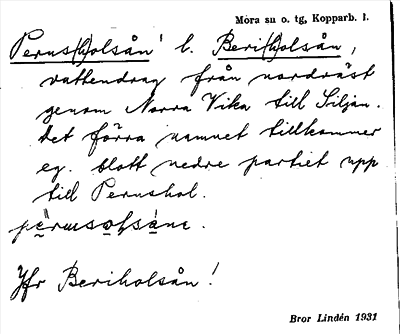 Mora sn o. tg, Kopparb. l.
Perus(h)olsån l. Beri(h)olsån,
vattendrag från nordväst
genom Norra Vika till Siljan.
Det förra namnet tillkommer
eg. blott nedre partiet upp
till Perushol.
Jfr Beriholsån!
Bror Lindén 1931